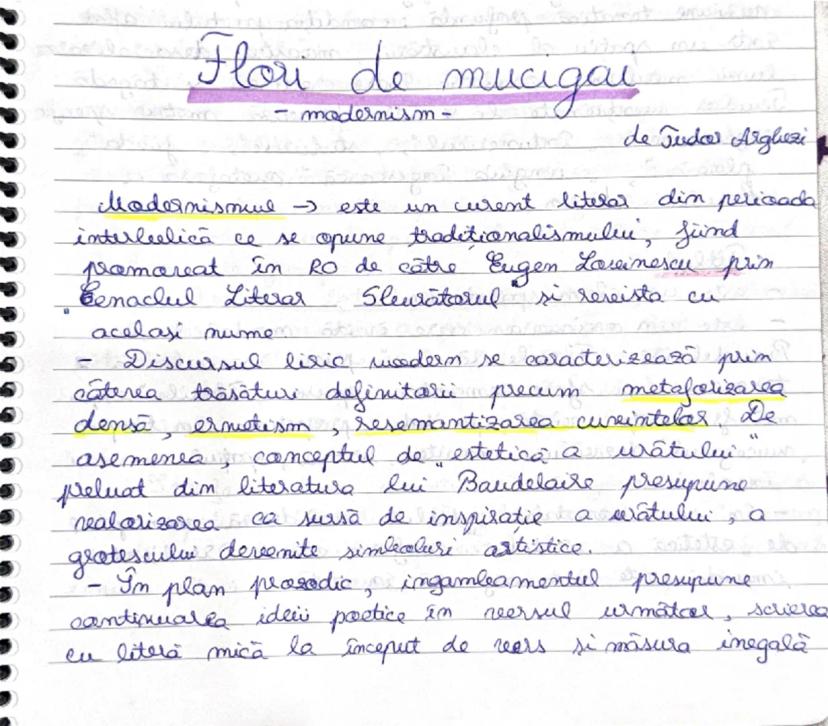 Flori de mucigai
- modernism -
de Tudor Arghezi
Modernismul → este un curent literar din perioada
interbelică ce se opune tradiționalismului, fiind
promovat în RO de către Eugen Lovinescu prin
Cenaclul Literar "Sburătorul" și revista cu
același nume
- Discursul liric modern se caracterizează prin
câteva trăsături definitorii precum metaforizarea
densă, ermetism, resemantizarea cuvintelor. De
asemenea, conceptul de "estetică a urâtului"
preluat din literatura lui Baudelaire presupune
valorizarea ca sursă de inspirație a urâtului, a
grotescului devenite simboluri artistice.
- În plan prozodic, ingambamentul presupune
continuarea ideii poetice în versul următor, scrierea
cu literă mică la început de vers și măsura inegală